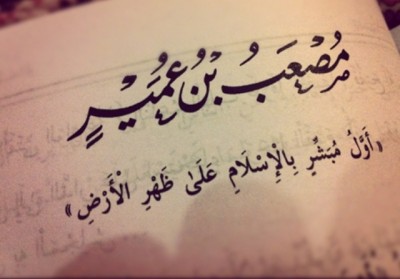 مُصْعَبُ بْنُ عُمَيْرٍ
«أَوَّلُ مُبَشِّرٍ بِالْإِسْلَامِ عَلَىٰ ظَهْرِ الْأَرْضِ»